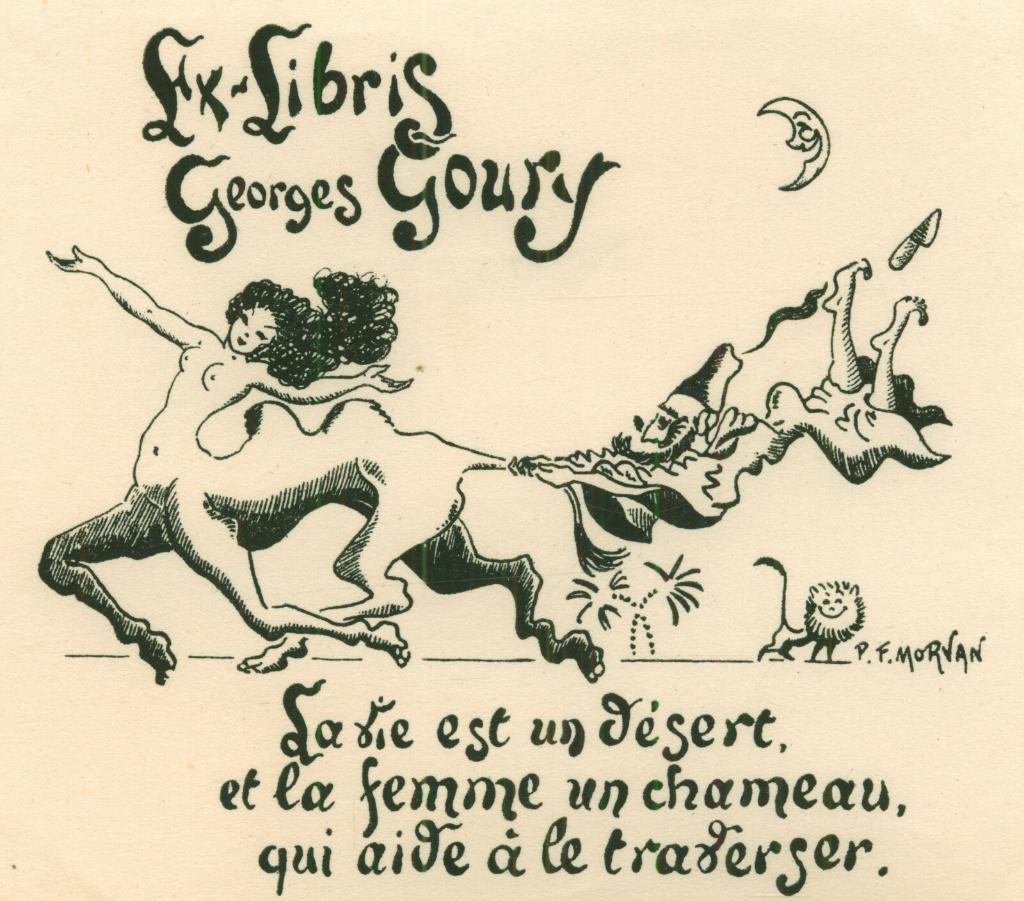 Ex-Libris
Georges Goury
P. F. MORVAN
La vie est un désert,
et la femme un chameau,
qui aide à le traverser.